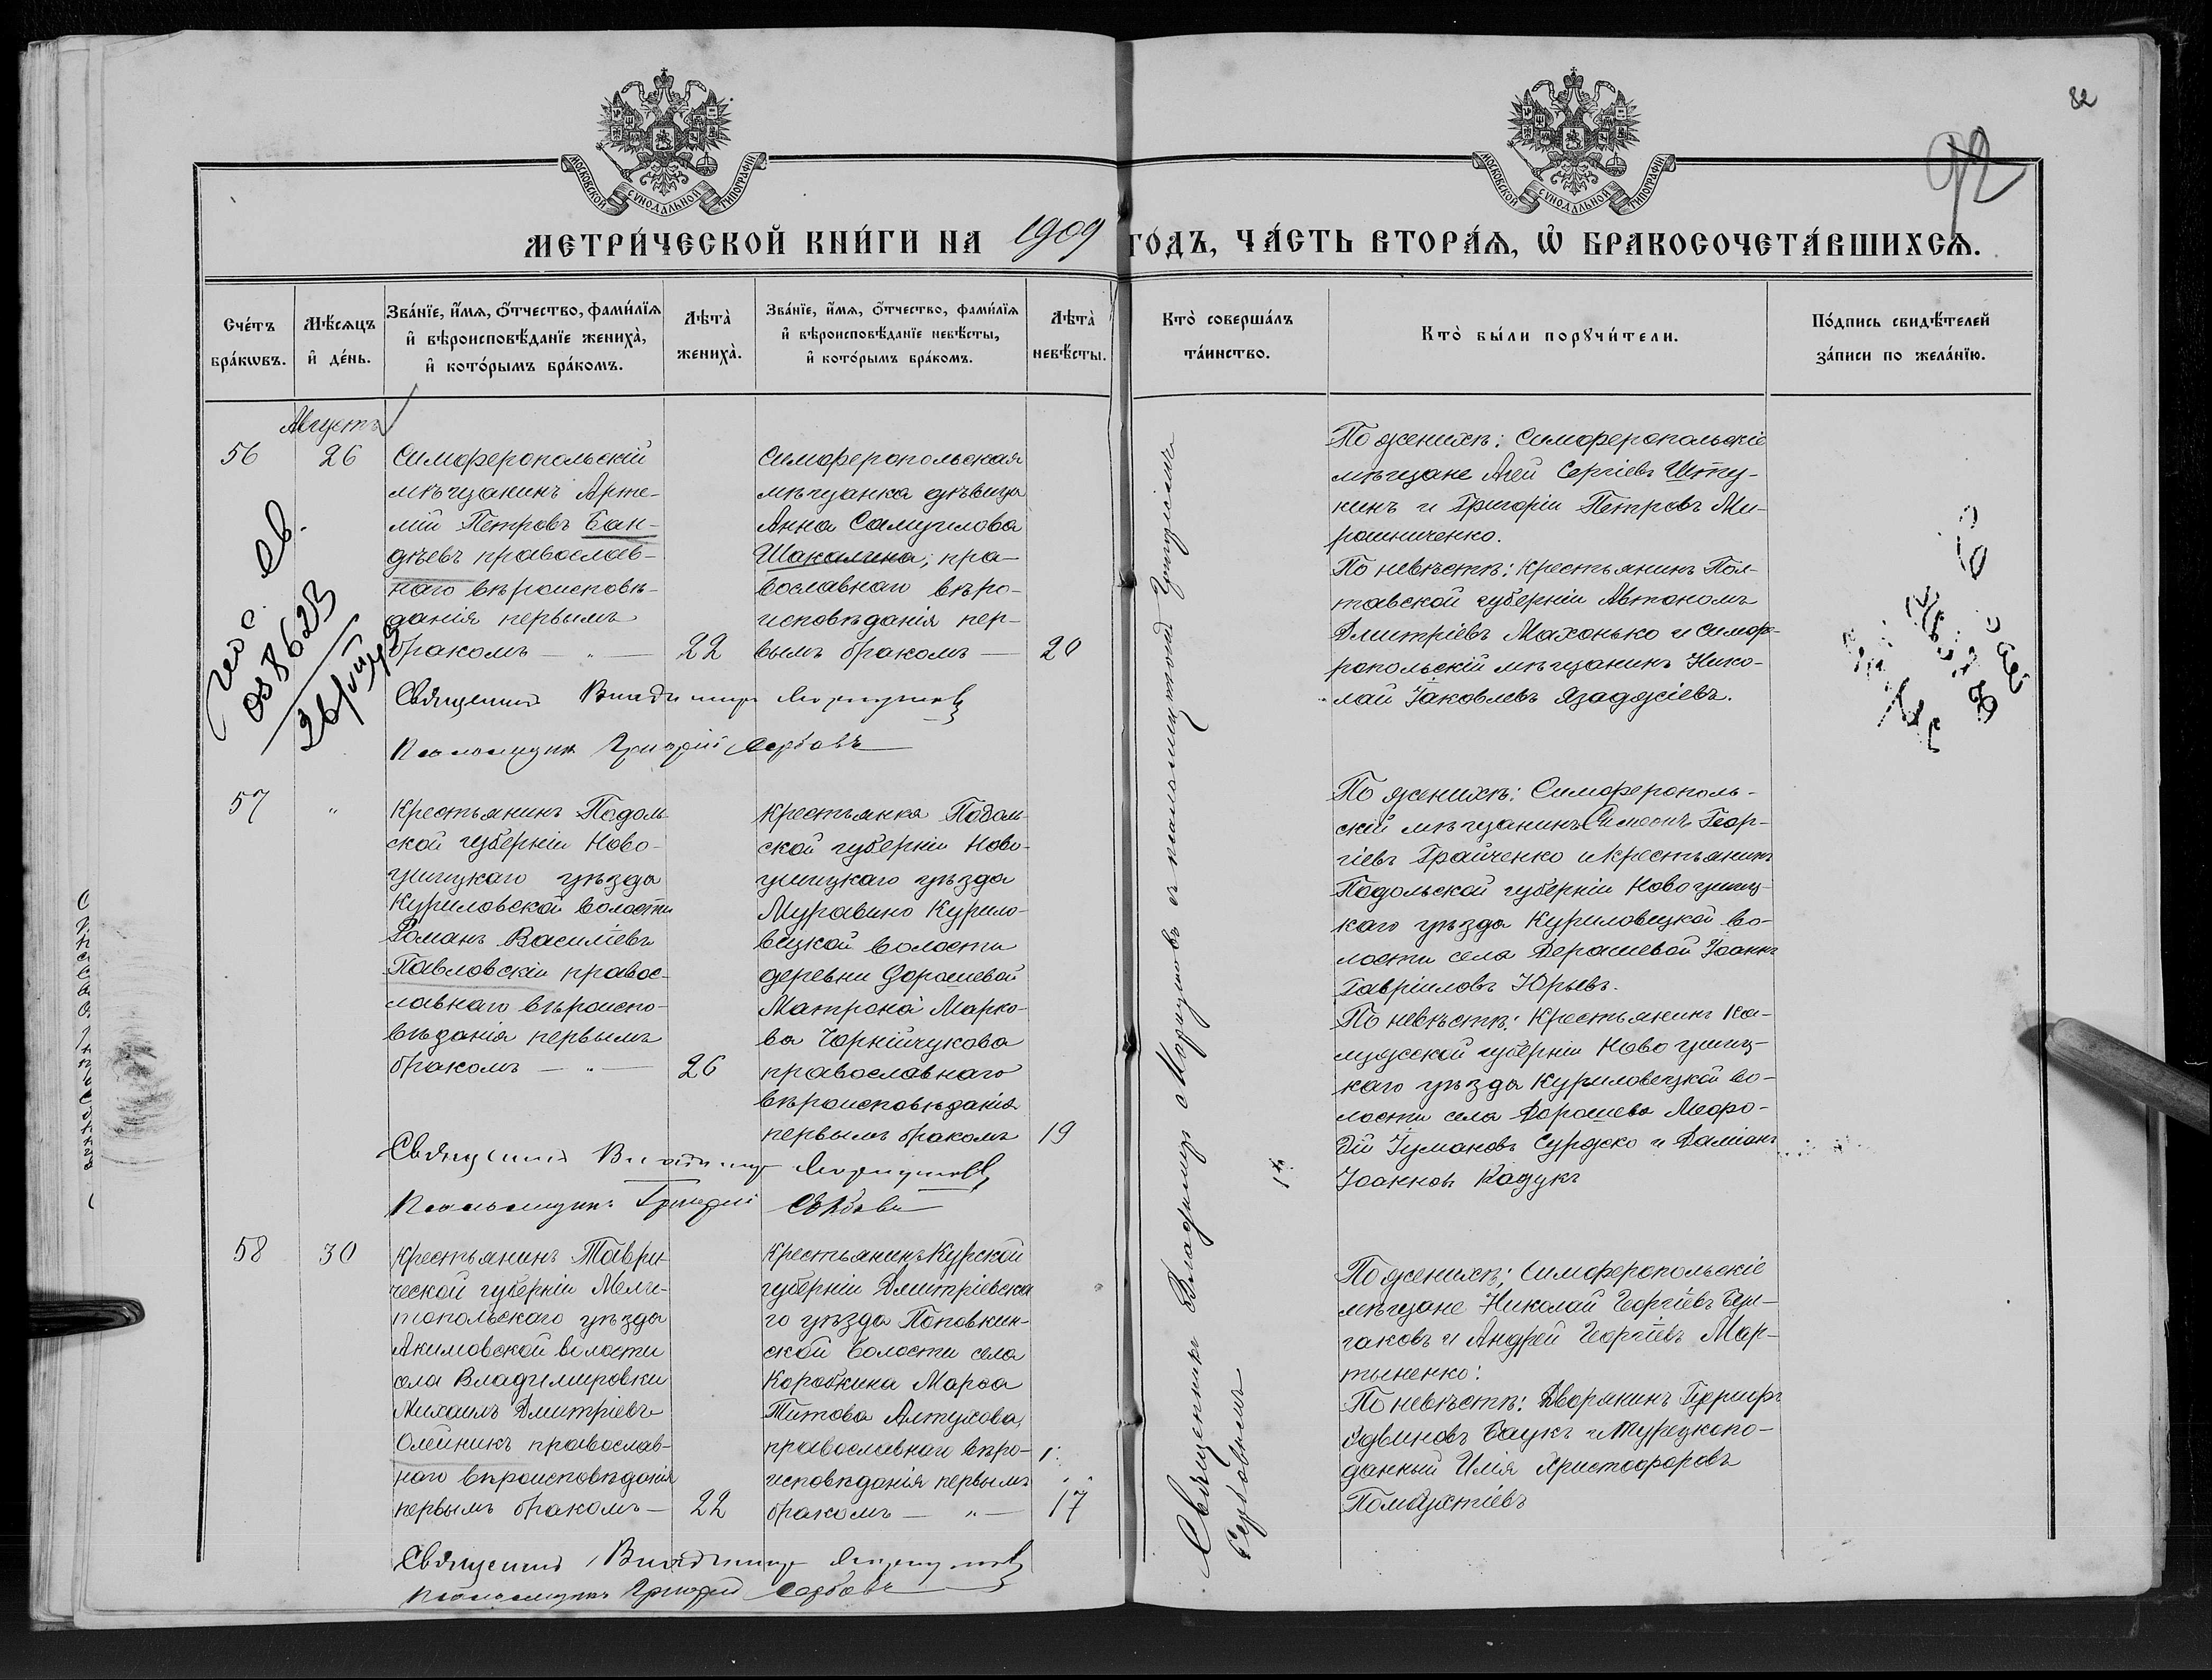 82
92
МОСКОВСКОЙ СѴНОДАЛЬНОЙ ТИПОГРАФІИ
МОСКОВСКОЙ СѴНОДАЛЬНОЙ ТИПОГРАФІИ
МЕТРИ́ЧЕСКОЙ КНИ́ГИ НА 1909 ГО́ДЪ, ЧА́СТЬ ВТОРА́Ѧ, Ѽ БРАКОСОЧЕТА́ВШИХСѦ.
Сче́тъ бра́кѡвъ.
Мѣ́сѧцъ и҆ де́нь.
Зва́нїе, и҆́мѧ, ѻ҆́тчество, фами́лїѧ
и҆ вѣроисповѣ́данїе жениха̀,
и҆ кото́рымъ бра́комъ.
Лѣта̀ жениха̀.
Зва́нїе, и҆́мѧ, ѻ҆́тчество, фами́лїѧ
и҆ вѣроисповѣ́данїе невѣ́сты,
и҆ кото́рымъ бра́комъ.
Лѣта̀ невѣ́сты.
Кто̀ соверша́лъ
та́инство.
Кто̀ бы́ли порꙋчи́тели.
По́дпись свидѣ́телей
за́писи по жела́нїю.
Августъ
56
26
Симферопольскій
мѣщанинъ Арте-
мій Петровъ Бан-
дѣевъ православ-
наго вѣроисповѣ-
данія первымъ
бракомъ — „ —
22
Симферопольская
мѣщанка дѣвица
Анна Самуилова
Шакалина, пра-
вославнаго вѣро-
исповѣданія пер-
вымъ бракомъ —
20
058623
Священникъ Владимиръ
Псаломщикъ Григорій Сербовъ
По женихѣ: Симферопольскіе
мѣщане Агей Сергіевъ Шту-
кинъ и Григорій Петровъ Ми-
рошниченко.
По невѣстѣ: крестьянинъ Пол-
тавской губерніи Автономъ
Дмитріевъ Махонько и симфе-
ропольскій мѣщанинъ Нико-
лай Іаковлевъ Язаджіевъ.
57
„
Крестьянинъ Подоль-
ской губерніи Ново-
ушицкаго уѣзда
Куриловской волости
Романъ Василіевъ
Павловскій правос-
лавнаго вѣроиспо-
вѣданія первымъ
бракомъ — „ —
26
Крестьянка Подоль-
ской губерніи Ново-
ушицкаго уѣзда
Муравино Курило-
вецкой волости
деревни Дорошевой
Матрона Марко-
ва Чорнійчукова
православнаго
вѣроисповѣданія
первымъ бракомъ
19
Священникъ Владимиръ
Псаломщикъ Григорій Сербовъ
По женихѣ: Симферополь-
скій мѣщанинъ Симеонъ Геор-
гіевъ Грайченко и крестьянинъ
Подольской губерніи Новоушиц-
каго уѣзда Куриловецкой во-
лости села Дерашевой Іоаннъ
Гавріиловъ Юрьевъ.
По невѣстѣ: Крестьянинъ Ка-
лужской губерніи Новоушиц-
каго уѣзда Куриловецкой во-
лости села Дорошева Меѳо-
дій Гумановъ Сурдско и Даміанъ
Іоанновъ Кадукъ
58
30
Крестьянинъ Таври-
ческой губерніи Мели-
топольскаго уѣзда
Акимовской волости
села Владимировки
Михаилъ Дмитріевъ
Олейникъ православ-
наго вѣроисповѣданія
первымъ бракомъ —
22
Крестьянинъ Курской
губерніи Дмитріевска-
го уѣзда Поповкин-
ской волости села
Коробкина Марѳа
Титова Алтухова,
православнаго вѣро-
исповѣданія первымъ
бракомъ — „ —
17
Священникъ Владимиръ
Псаломщикъ Григорій Сербовъ
По женихѣ: Симферопольскіе
мѣщане Николай Георгіевъ Бул-
гаковъ и Андрей Георгіевъ Мар-
тыненко:
По невѣстѣ: Дворянинъ
Эдвиновъ Баукъ и Турецкопо-
данный Илія Христофоровъ
Священникъ Владимиръ съ псаломщикомъ Григоріемъ
Сербовымъ